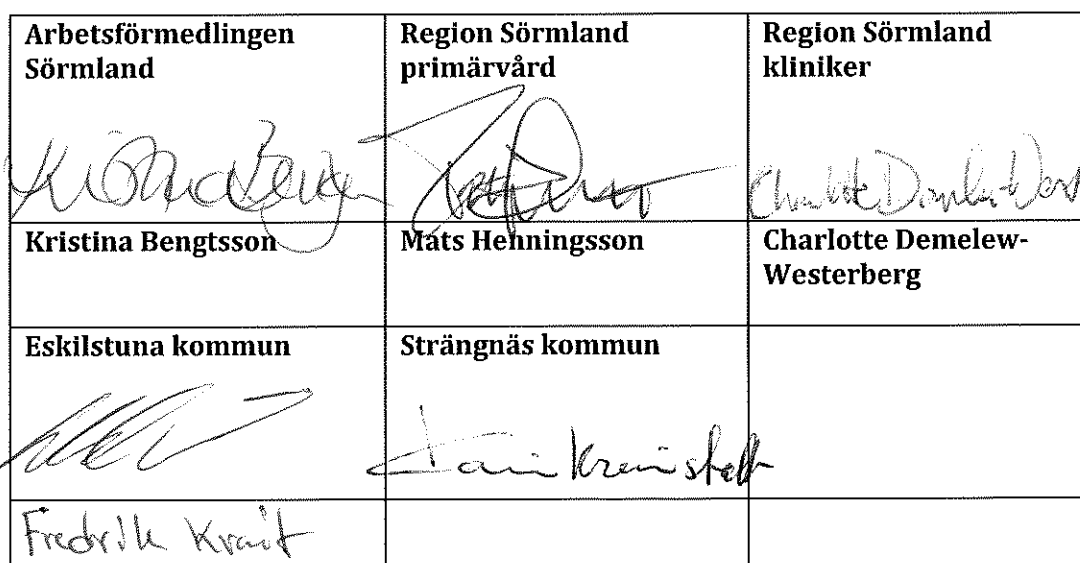 Arbetsförmedlingen
Sörmland
Region Sörmland
primärvård
Region Sörmland
kliniker
Kristina Bengtsson
Mats Henningsson
Charlotte Demelew-
Westerberg
Eskilstuna kommun
Strängnäs kommun
Fredrik